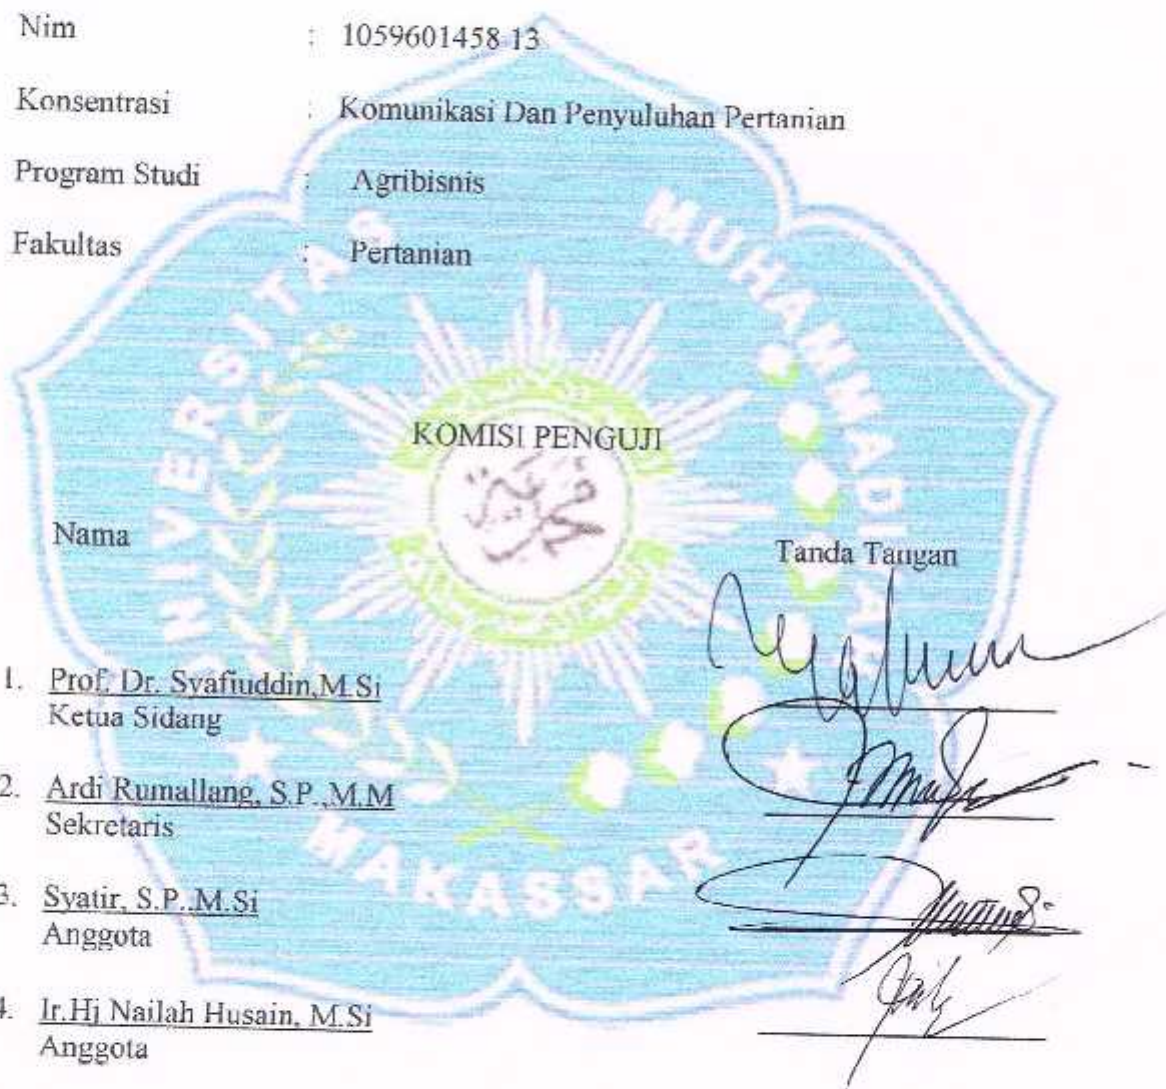 Nim : 1059601458 13
Konsentrasi : Komunikasi Dan Penyuluhan Pertanian
Program Studi : Agribisnis
Fakultas : Pertanian
UNIVERSITAS MUHAMMADIYAH
MAKASSAR
KOMISI PENGUJI
Nama Tanda Tangan
1. Prof. Dr. Syafiuddin,M.Si
Ketua Sidang
2. Ardi Rumallang, S.P.,M.M
Sekretaris
3. Syatir, S.P.,M.Si
Anggota
4. Ir.Hj Nailah Husain, M.Si
Anggota